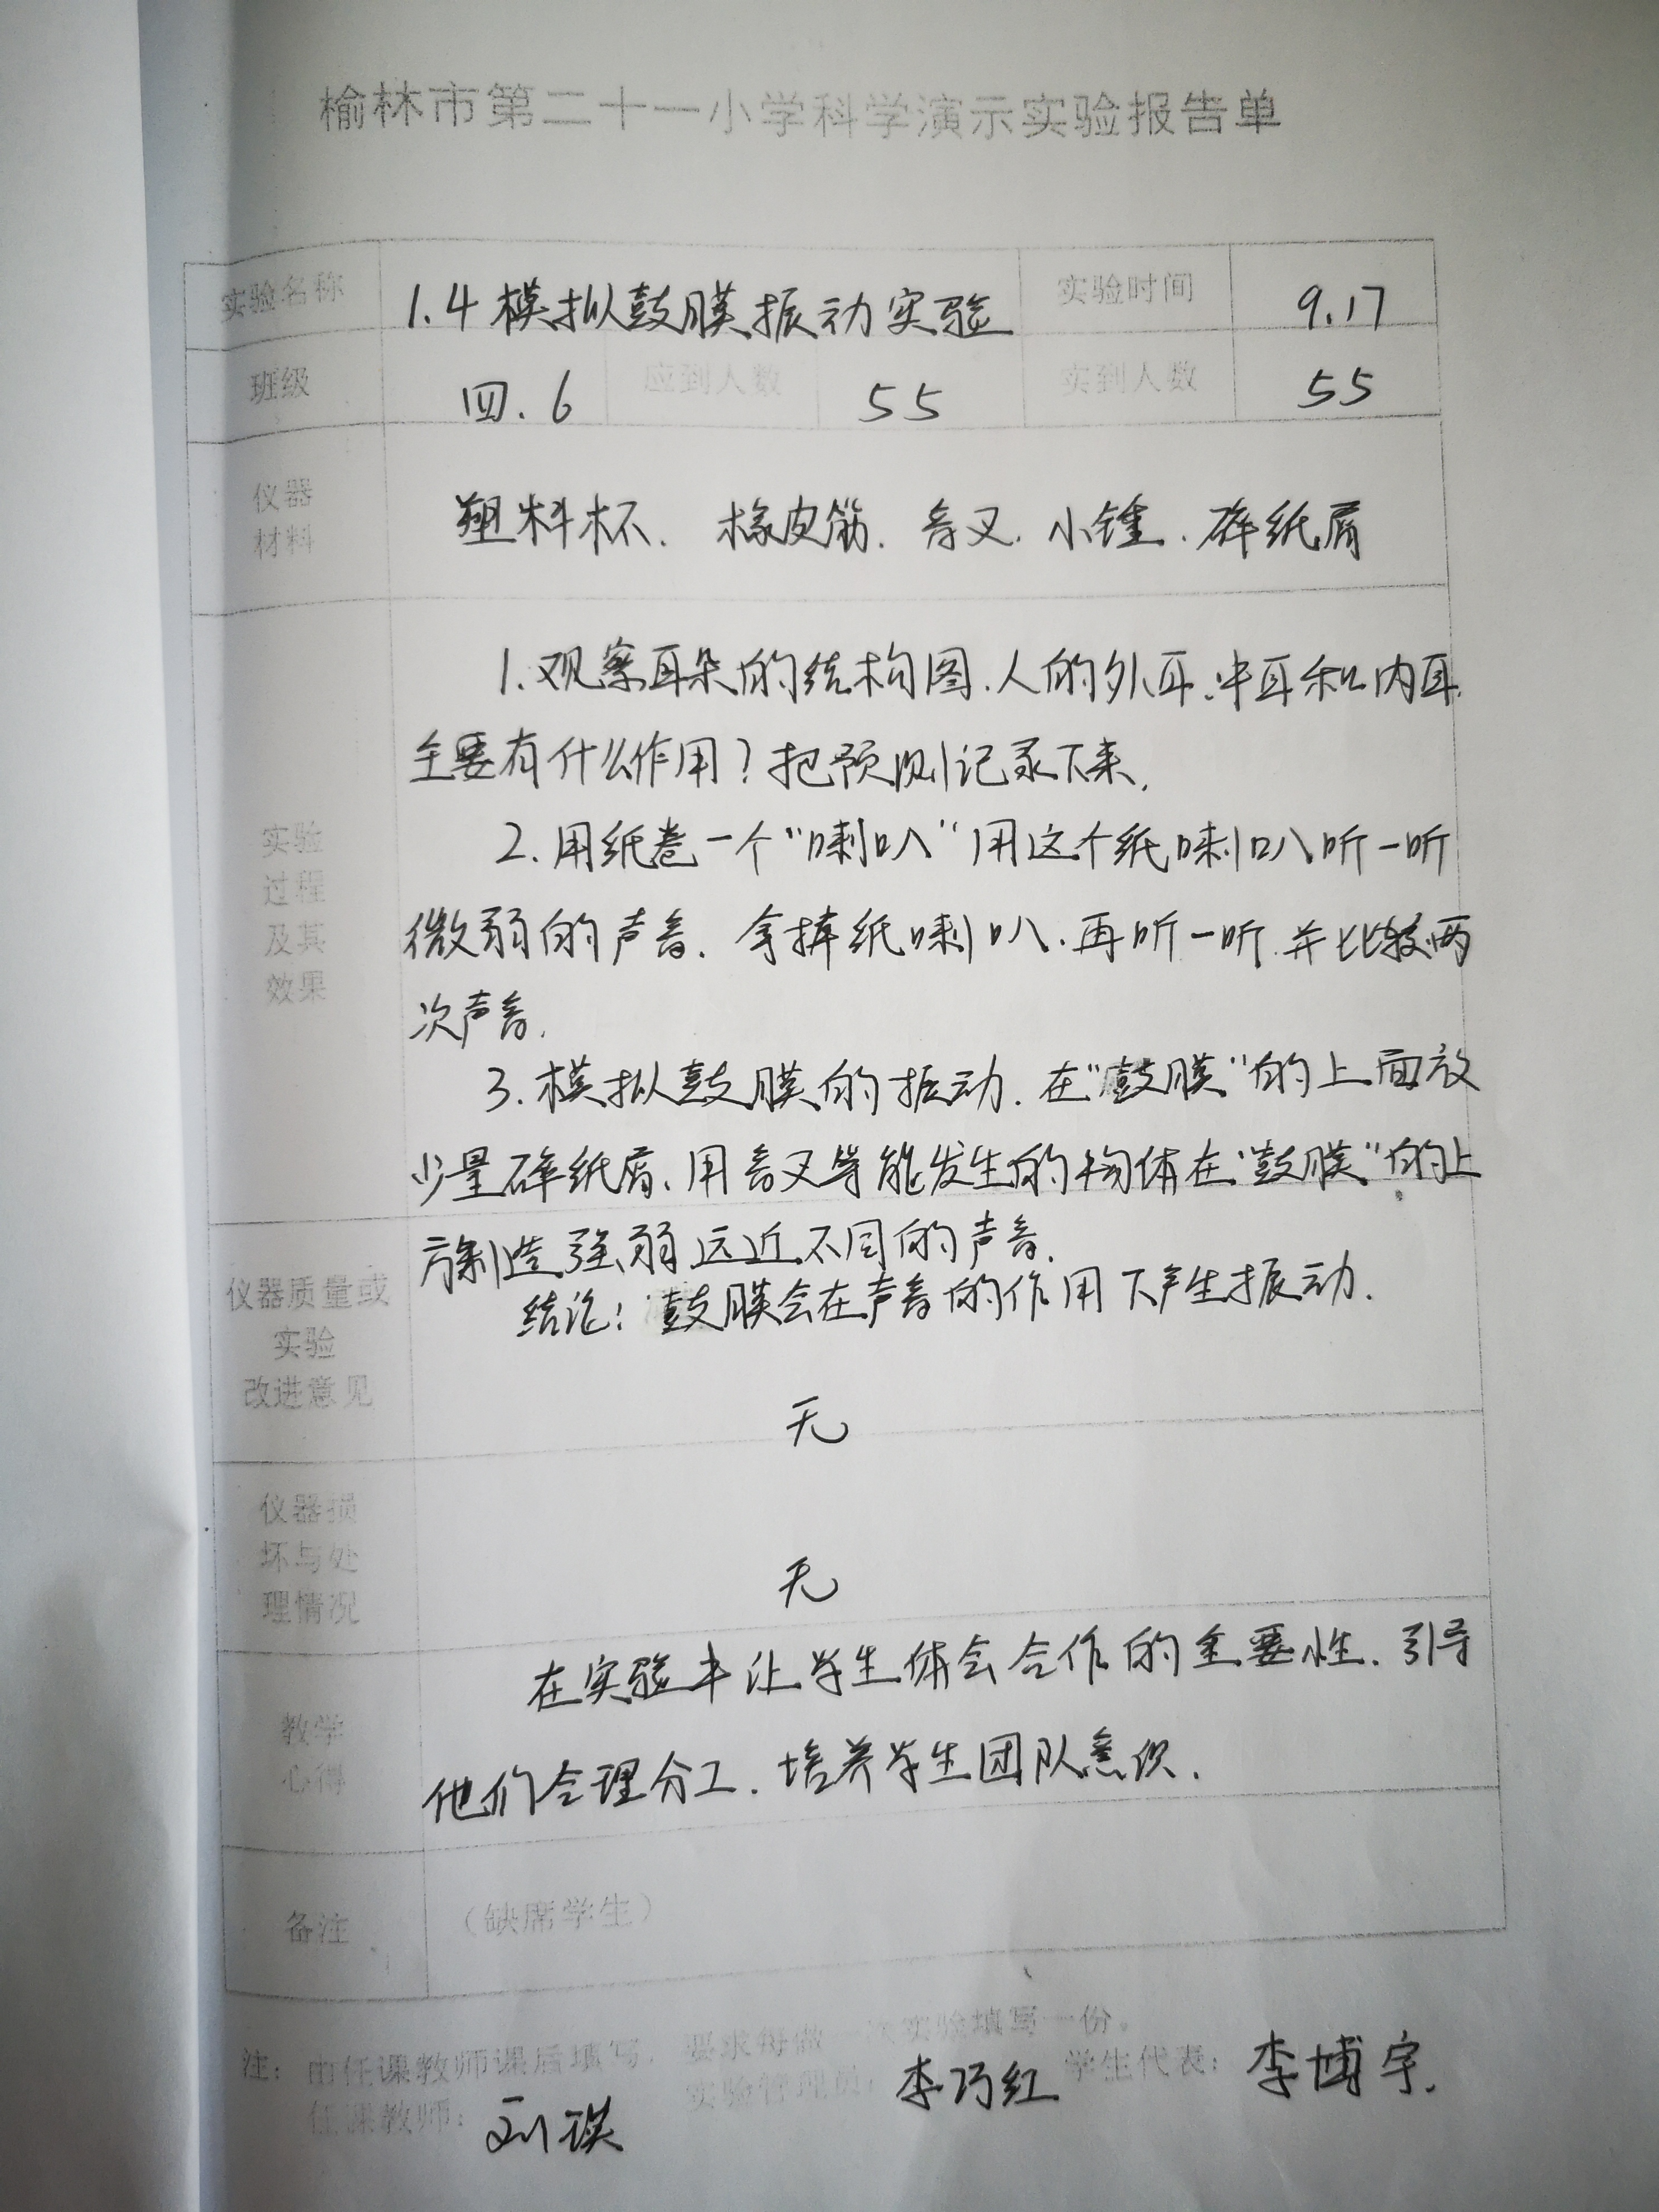 榆林市第二十一小学科学演示实验报告单
实验名称 1.4模拟鼓膜振动实验 实验时间 9.17
班级 四.6 应到人数 55 实到人数 55
仪器
材料
塑料杯、橡皮筋、音叉、小锤、碎纸屑
实验
过程
及其
效果
1.观察耳朵的结构图、人的外耳、中耳和内耳
主要有什么作用？把预测记录下来.
2.用纸卷一个“喇叭”用这个纸喇叭听一听
微弱的声音.拿掉纸喇叭.再听一听.并比较两
次声音.
3.模拟鼓膜的振动.在“鼓膜”的上面放
少量碎纸屑、用音叉等能发生的物体在“鼓膜”的上
方制造强弱远近不同的声音.
结论：鼓膜会在声音的作用下产生振动.
仪器质量或
实验
改进意见
无
仪器损
坏与处
理情况
无
教学
心得
在实验中让学生体会合作的重要性.引导
他们合理分工.培养学生团队意识.
备注 （缺席学生）
注：由任课教师课后填写，要求每做一次实验填写一份。
任课教师：刘琪 实验管理员：李巧红 学生代表：李博宇.